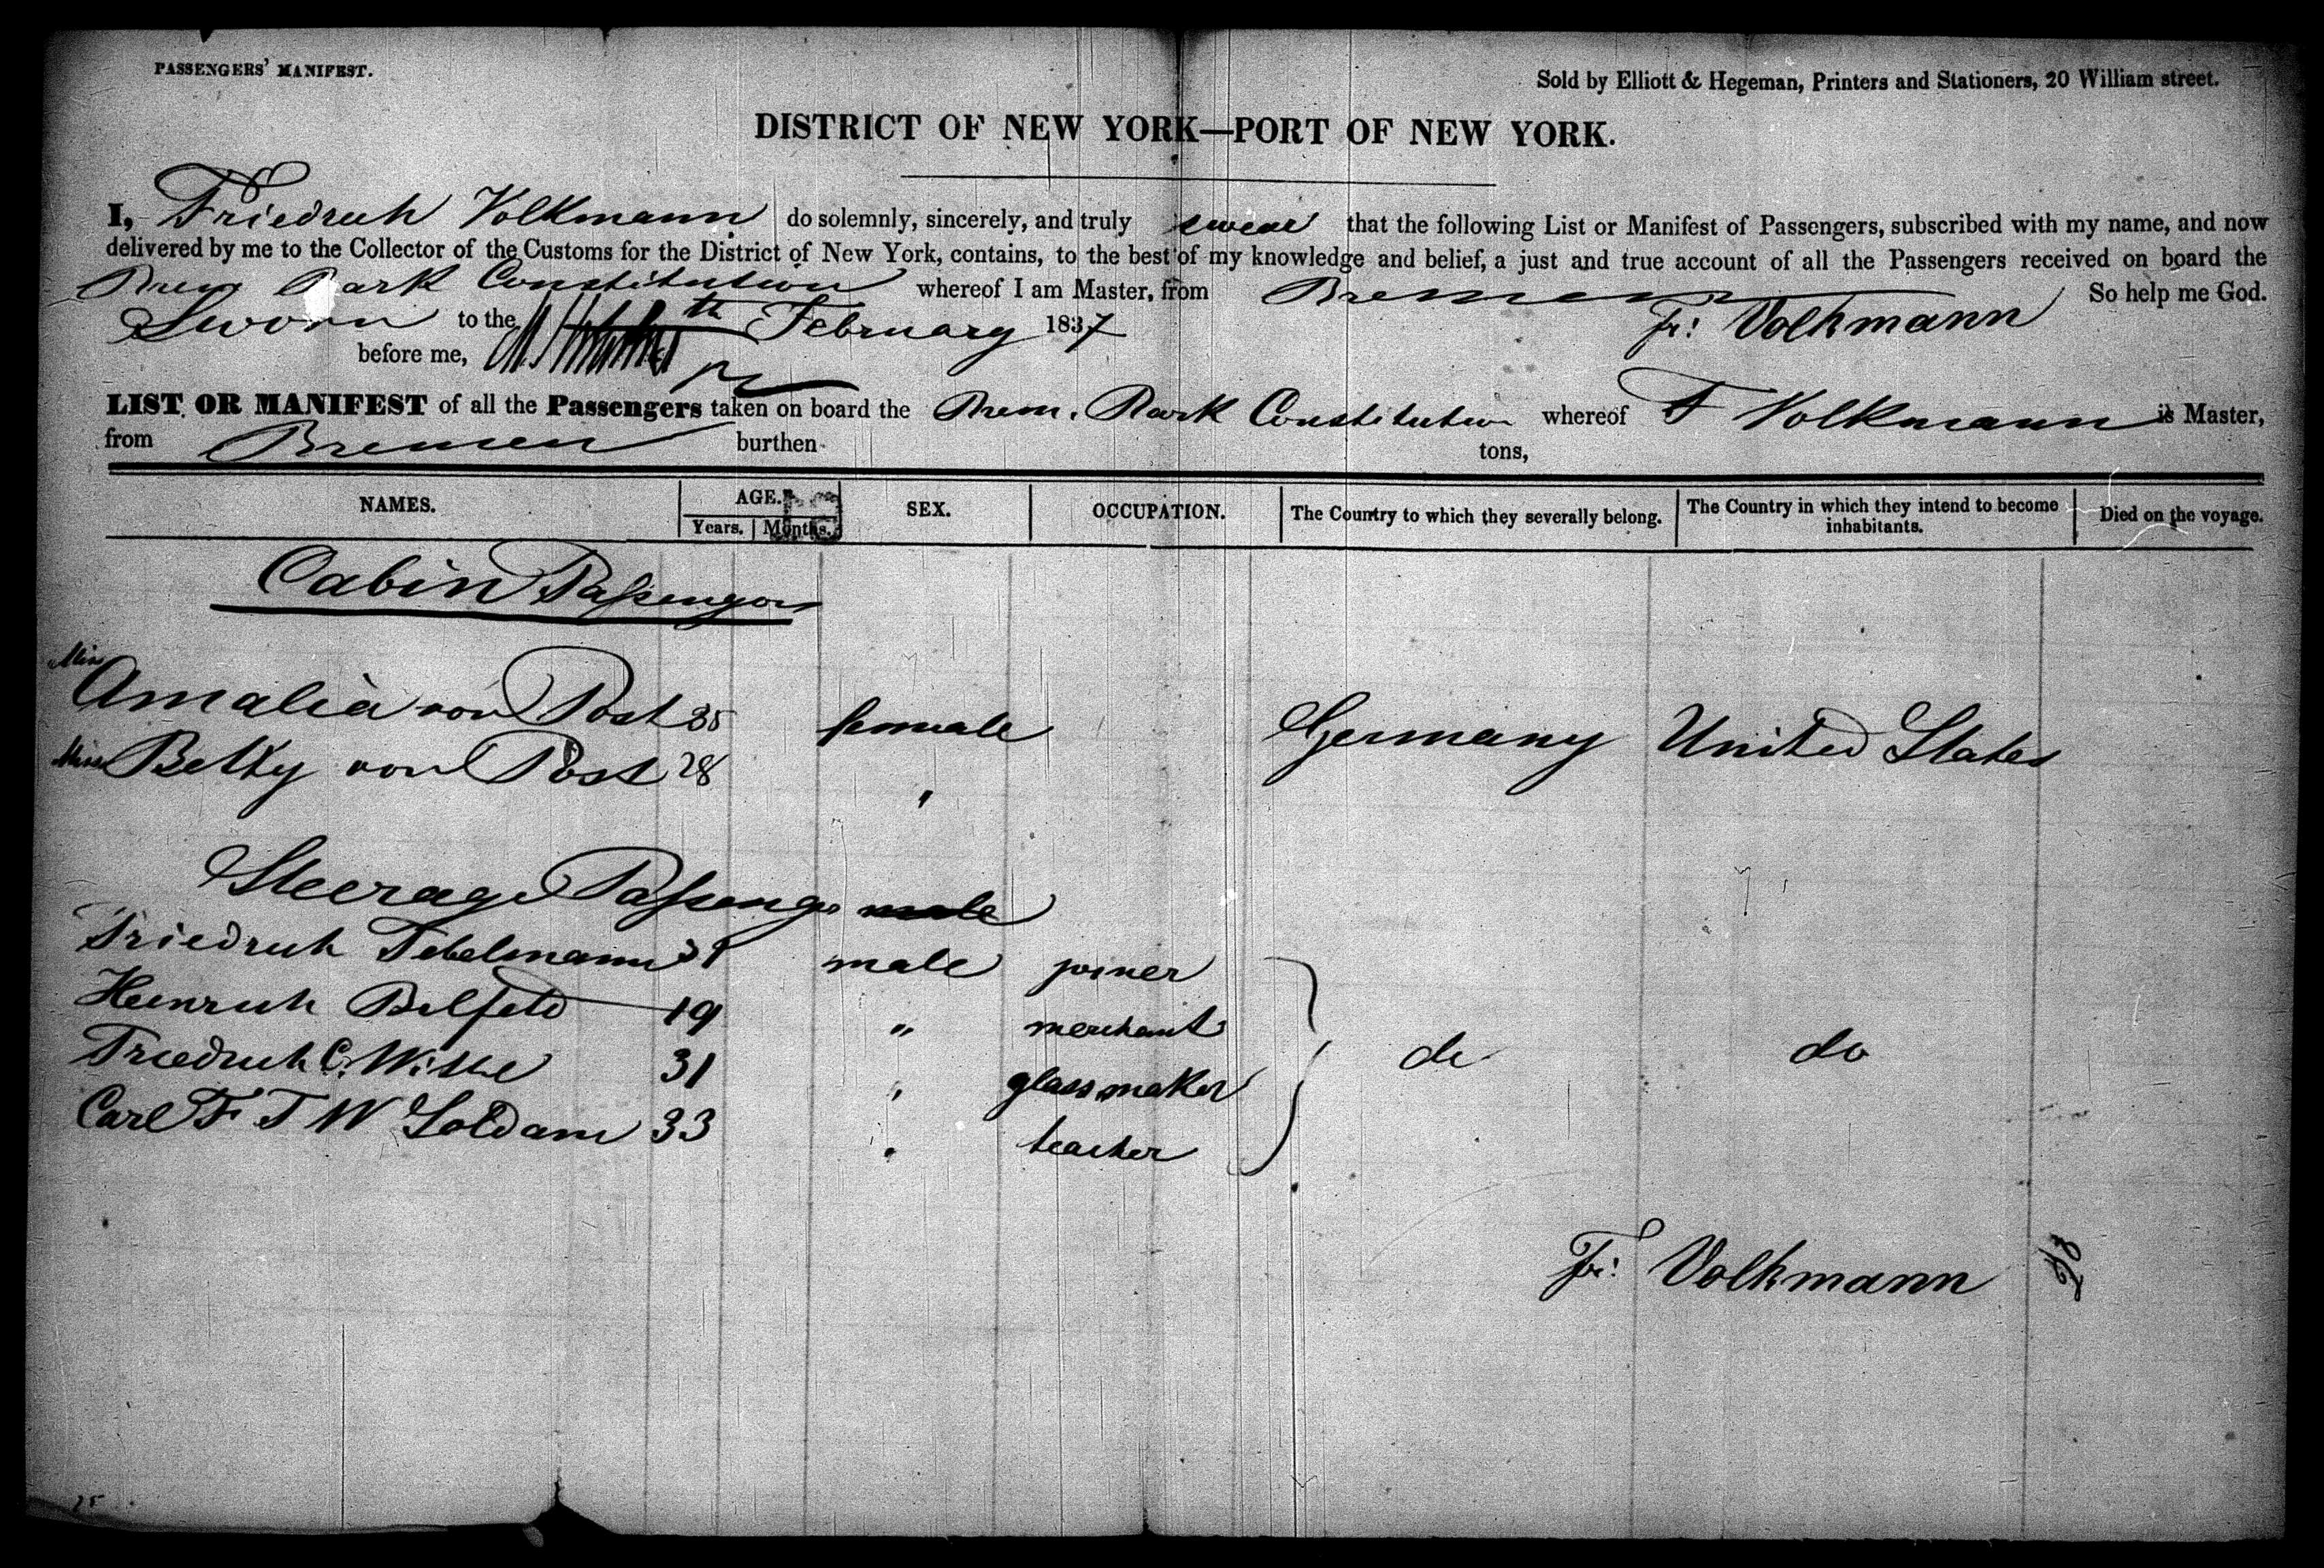 PASSENGERS' MANIFEST.
Sold by Elliott & Hegeman, Printers and Stationers, 20 William street.
DISTRICT OF NEW YORK—PORT OF NEW YORK.
I, Friedrich Volkmann do solemnly, sincerely, and truly swear that the following List or Manifest of Passengers, subscribed with my name, and now
delivered by me to the Collector of the Customs for the District of New York, contains, to the best of my knowledge and belief, a just and true account of all the Passengers received on board the
Brem Bark Constitution whereof I am Master, from Bremen So help me God.
Sworn to the th February 1837 Fr: Volkmann
before me,
LIST OR MANIFEST of all the Passengers taken on board the Brem. Bark Constitution whereof F Volkmann is Master,
from Bremen burthen tons,
NAMES. AGE. SEX. OCCUPATION. The Country to which they severally belong. The Country in which they intend to become inhabitants. Died on the voyage.
Years. Months.
Cabin Passengers
Miss Amalia von Post 35 female Germany United States
Miss Betty von Post 28 "
Steerage Passengs male
Friedrich Tebelmann 31 male joiner
Heinrich Belfeld 19 " merchant
Friedrich C. Witte 31 " glassmaker do do
Carl F T W Soldam 33 " teacher
Fr: Volkmann